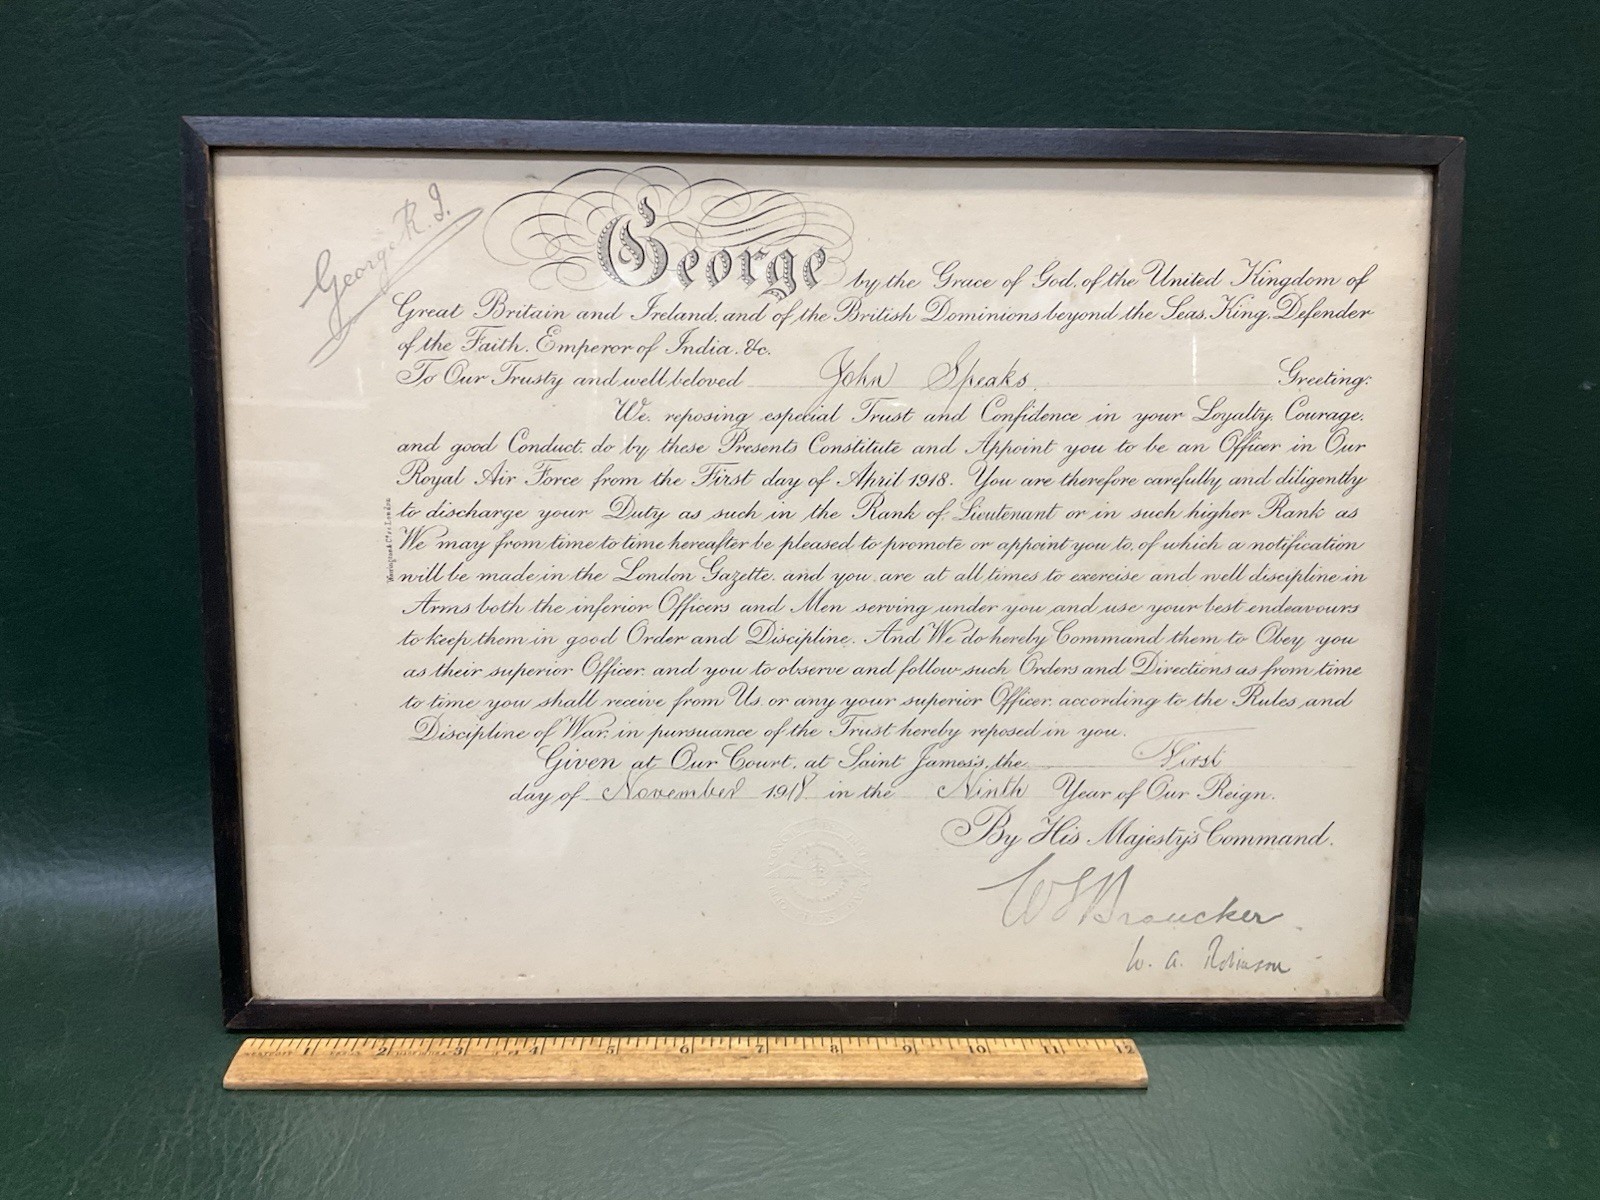 George R.I.
George by the Grace of God, of the United Kingdom of
Great Britain and Ireland, and of the British Dominions beyond the Seas, King, Defender
of the Faith, Emperor of India, &c.
To Our Trusty and well beloved John Speaks. Greeting:
We, reposing especial Trust and Confidence in your Loyalty, Courage,
and good Conduct, do by these Presents Constitute and Appoint you to be an Officer in Our
Royal Air Force from the First day of April 1918. You are therefore carefully and diligently
to discharge your Duty as such in the Rank of Lieutenant or in such higher Rank as
We may from time to time hereafter be pleased to promote or appoint you to, of which a notification
will be made in the London Gazette, and you are at all times to exercise and well discipline in
Arms both the inferior Officers and Men serving under you and use your best endeavours
to keep them in good Order and Discipline. And We do hereby Command them to Obey you
as their superior Officer, and you to observe and follow such Orders and Directions as from time
to time you shall receive from Us, or any your superior Officer, according to the Rules and
Discipline of War, in pursuance of the Trust hereby reposed in you.
Given at Our Court, at Saint James's, the First
day of November 1918 in the Ninth Year of Our Reign.
By His Majesty's Command.
W. A. Robinson
1 2 3 4 5 6 7 8 9 10 11 12